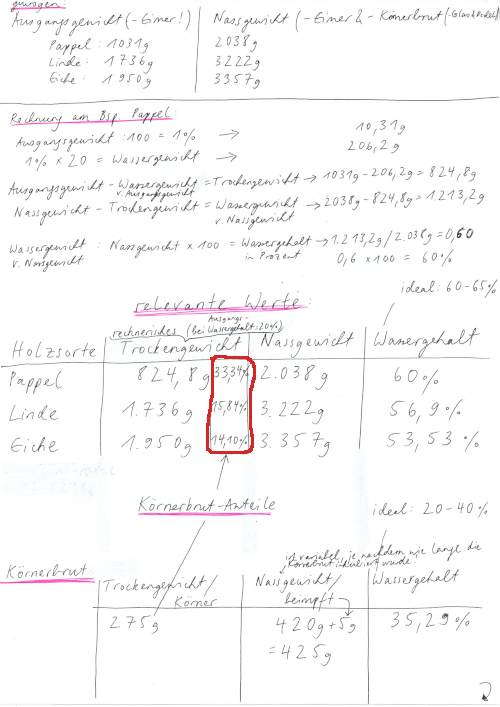 gewogen:
Ausgangsgewicht (-Eimer!) Nassgewicht (-Eimer & -Körnerbrut (-Glas & Deckel)
Pappel: 1031g 2038g
Linde: 1736g 3222g
Eiche: 1950g 3357g
Rechnung am Bsp. Pappel:
Ausgangsgewicht :100 = 1% → 10,31g
1% x 20 = Wassergewicht → 206,2g
Ausgangsgewicht - Wassergewicht = Trockengewicht → 1031g - 206,2g = 824,8g
v. Ausgangsgewicht
Nassgewicht - Trockengewicht = Wassergewicht → 2038g - 824,8g = 1.213,2g
v. Nassgewicht
Wassergewicht : Nassgewicht x 100 = Wassergehalt → 1.213,2g / 2.038g = 0,60
v. Nassgewicht in Prozent 0,6 x 100 = 60%
ideal: 60-65%
relevante Werte:
Ausgangs-
rechnerisches (bei Wassergehalt: 20%)
Holzsorte Trockengewicht Nassgewicht Wassergehalt
Pappel 824,8g 33,34% 2.038g 60%
Linde 1.736g 15,84% 3.222g 56,9%
Eiche 1.950g 14,10% 3.357g 53,53%
Körnerbrut-Anteile
ideal: 20-40%
ist variabel, je nachdem wie lange die
Körnerbrut inkubiert wurde.
Körnerbrut Trockengewicht/ Nassgewicht/ Wassergehalt
Körner beimpft
275g 420g+5g 35,29%
=425g